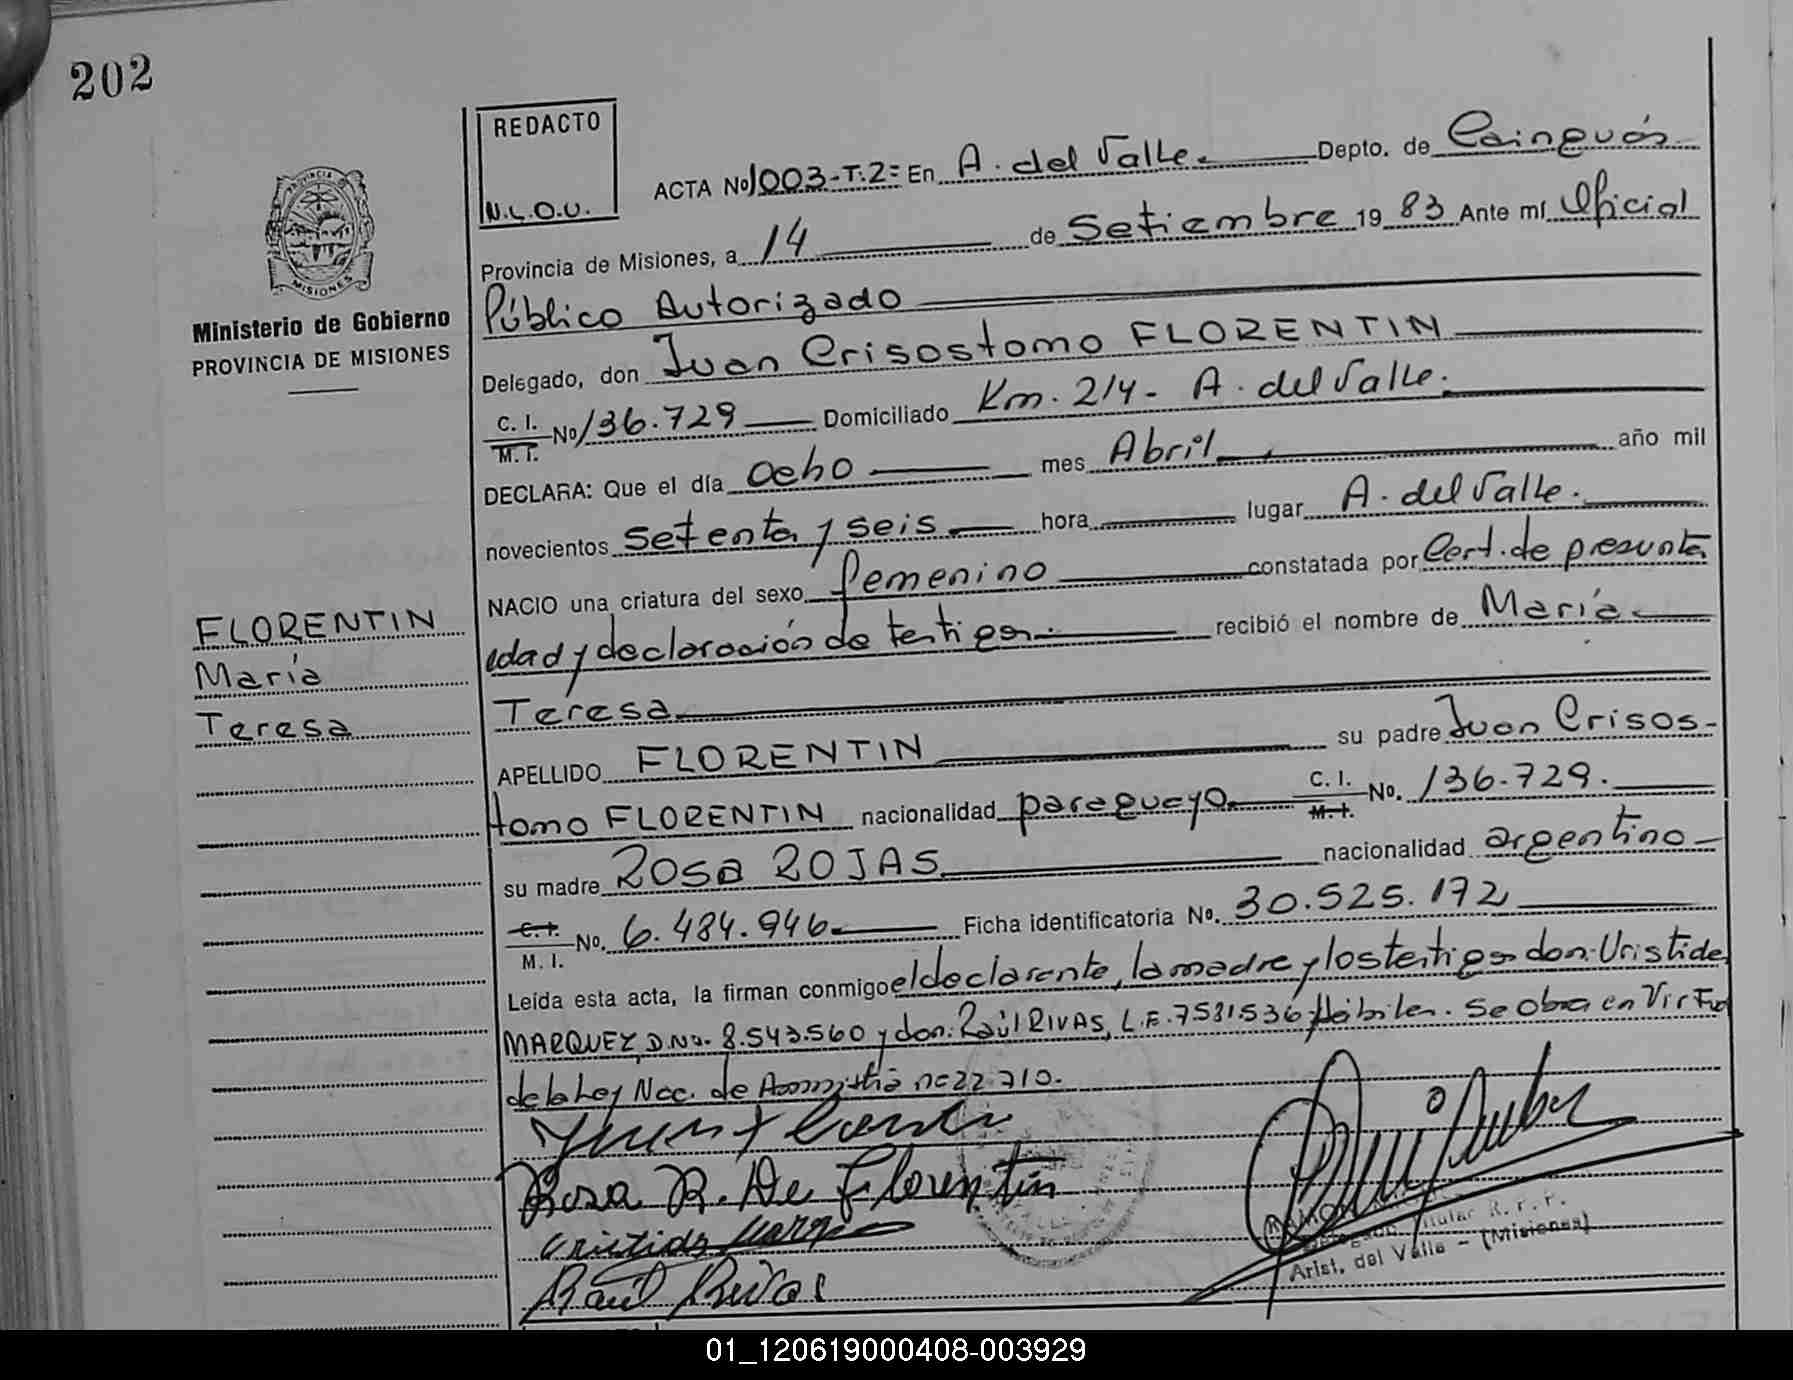 202
REDACTO
N.L.O.U.
PROVINCIA
MISIONES
Ministerio de Gobierno
PROVINCIA DE MISIONES
ACTA No 1003-T.2= En A. del Valle. Depto. de Cainguás
Provincia de Misiones, a 14 de Setiembre 19 83 Ante mí Oficial
Público Autorizado
Delegado, don Juan Crisostomo FLORENTIN
C. I. M. I. No 136.729 Domiciliado Km. 214- A. del Valle.
DECLARA: Que el día ocho mes Abril año mil
novecientos setenta y seis hora lugar A. del Valle.
NACIO una criatura del sexo femenino constatada por Cert. de presunta
edad y declaración de testigos. recibió el nombre de María
Teresa
APELLIDO FLORENTIN su padre Juan Crisos-
tomo FLORENTIN nacionalidad paraguayo C. I. M. I. No. 136.729.
su madre ROSA ROJAS nacionalidad argentino
C. I. M. I. No. 6.484.946 Ficha identificatoria No. 30.525.172
Leída esta acta, la firman conmigo el declarante, la madre y los testigos don: Uristides
MARQUEZ, D.No. 8.543.560 y don: Raúl RIVAS, L.E. 7581536 Hábiles. Se obra en Virtud
de la Ley Nac. de Amnistía nº 22.710.
FLORENTIN
María
Teresa
Rosa R. De Florentin
Raul Rivas
Titular R. P. P.
Arist. del Valle - (Misiones)
01_120619000408-003929